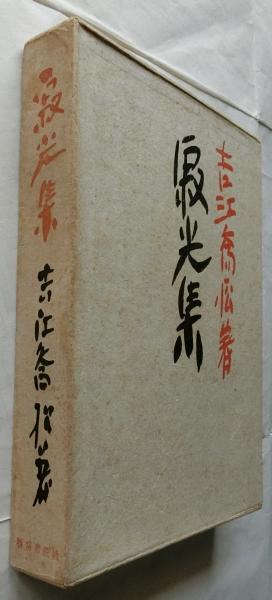 吉江喬松著
寂光集
寂光集
吉江喬松著